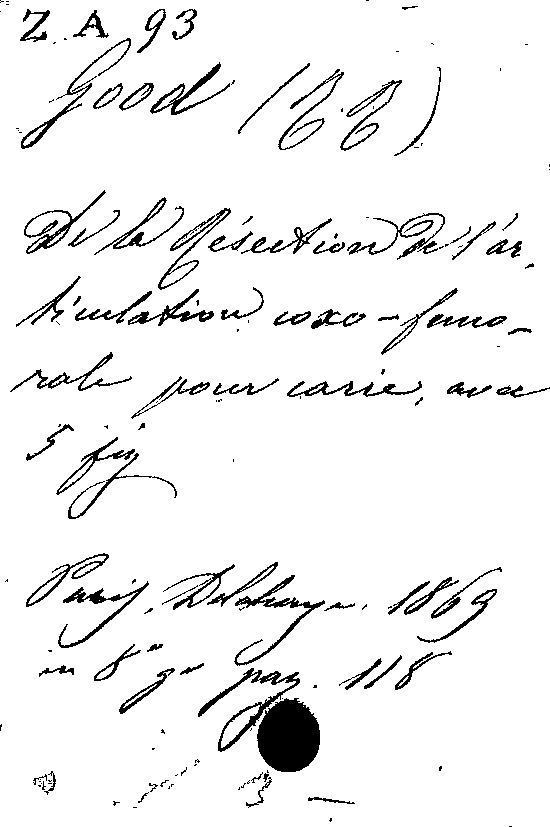 Z A 93
Good (R R)
De la Résection de l'ar
ticulation coxo-femo-
rale pour carie, avec
5 fig
Paris, Delahaye. 1869
in 8° gr pag. 118
3 —